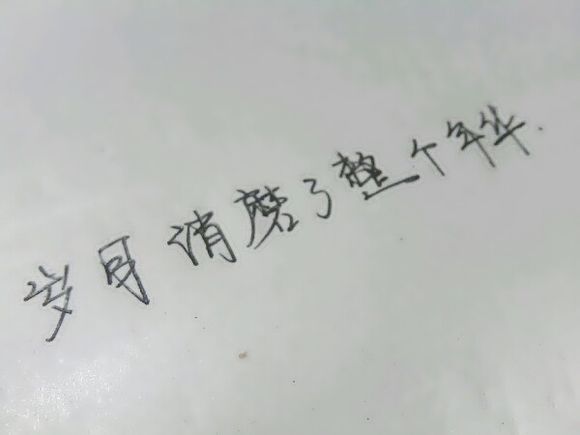 岁月消磨了整个年华.